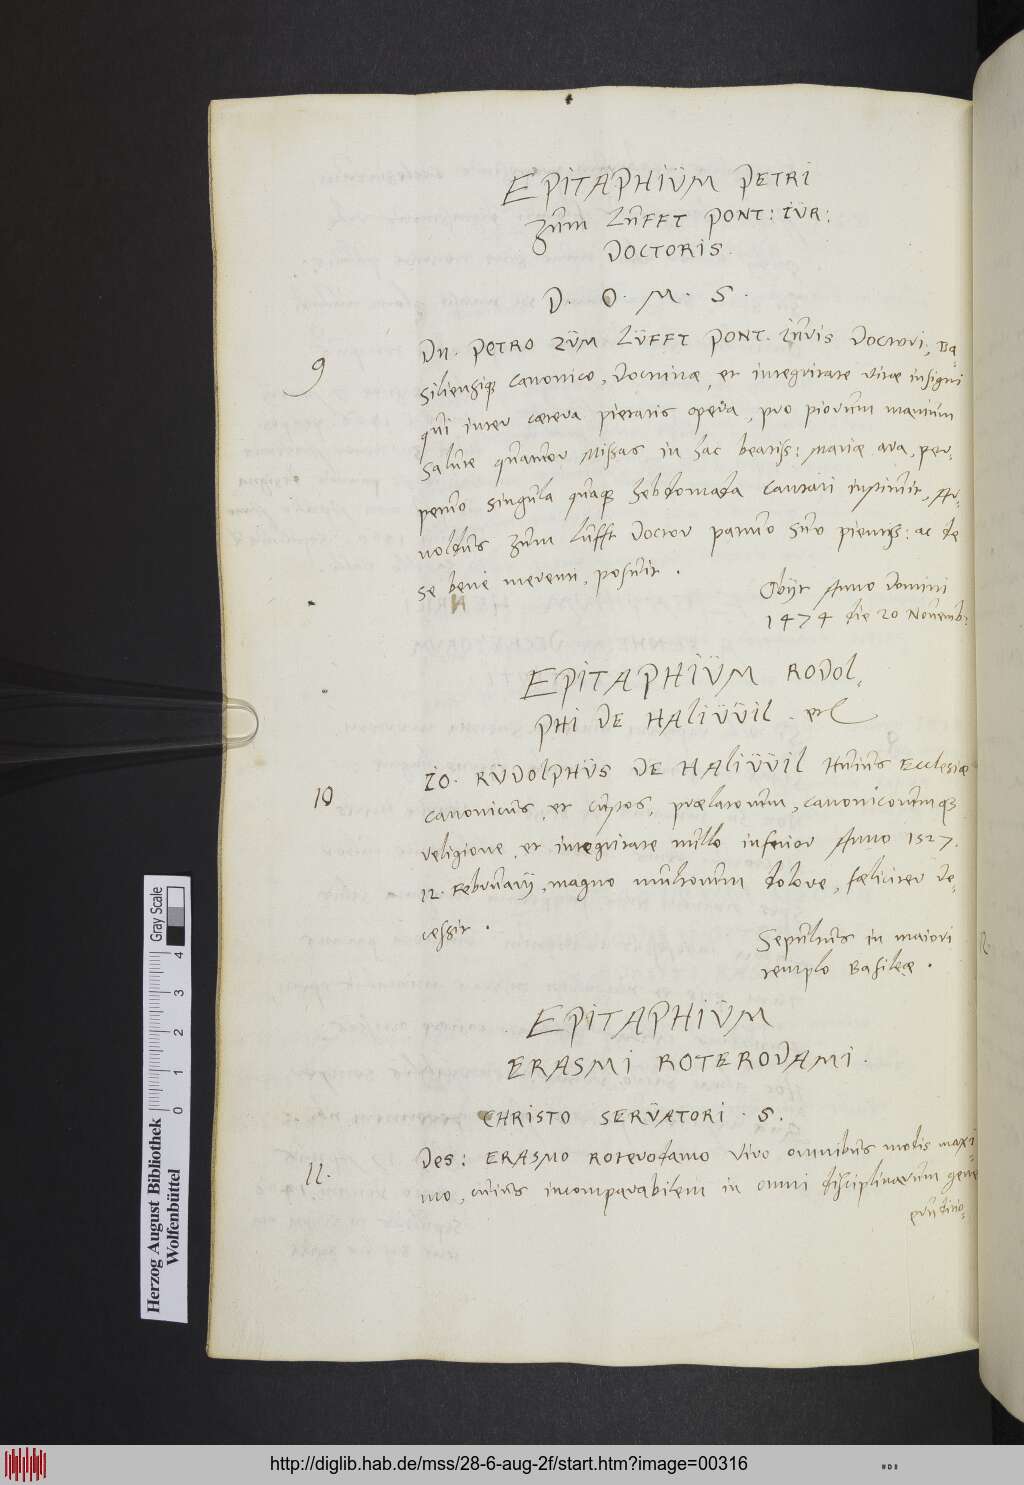 EPITAPHIÜM PETRI
Zum Lufft PONT: IÜR:
DOCTORIS.
D. O. M. S.
9
Dn. PETRO ZÜM LÜFFT PONT. Iuris Doctori, Ba-
siliensiq; Canonico, Doctrinæ, et integritate vitæ insigni
qui inter cætera pietatis opera, pro piorum manium
salute quatuor Missas in hac beatiss: Mariæ ara, per-
petuo singula quaq; hebdomada Cantari instituit, Ar-
noldus zum lufft Doctor patruo suo pientiss: ac de
se bene merenti, posuit.
Obijt Anno domini
1474 die 20 Novemb:
EPITAPHIÜM RODOL-
PHI DE HALIÜÜIL. etc
10
IO. RÜDOLPHÜS DE HALIÜÜIL Huius Ecclesiæ
canonicus, et custos, prælatorum, canonicorumq;
religione, et integritate nullo inferior Anno 1527.
12. Februarij, magno multorum dolore, fæliciter de-
cessit.
Sepultus in maiori
templo Basileæ.
EPITAPHIÜM
ERASMI ROTERODAMI.
CHRISTO SERÜATORI. S.
11.
Des: ERASMO ROTERODAMO viro omnibus modis maxi-
mo, cuius incomparabilem in omni disciplinarum gene
eruditio-
Herzog August Bibliothek
Wolfenbüttel
0 1 2 3 4
Gray Scale
http://diglib.hab.de/mss/28-6-aug-2f/start.htm?image=00316